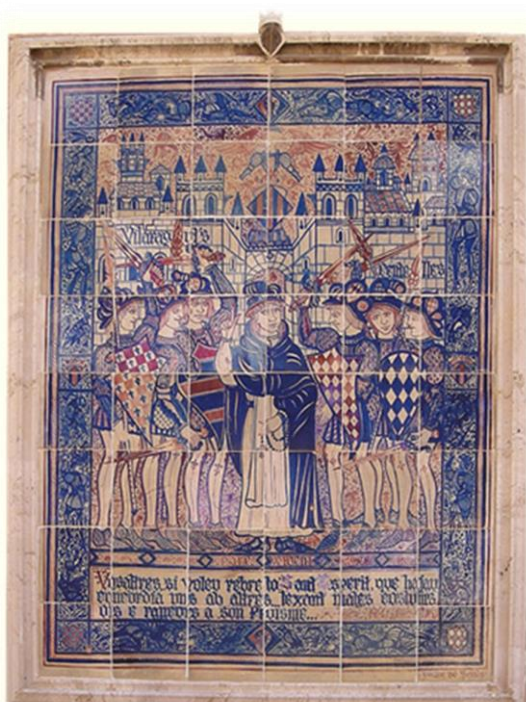 Vilaraguts
Centelles
Vosaltres, si voleu rebre lo Sant Esperit, que hajau
concordia uns ab altres, lexant males costums
odis e rancors a son Proisme...